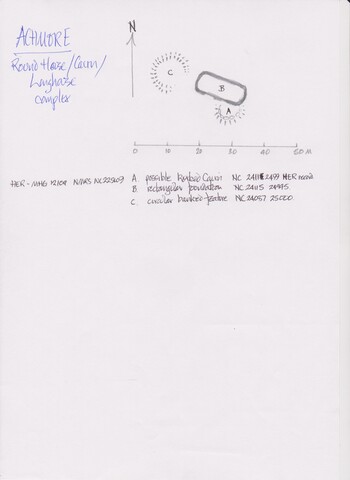 ACHMORE
Round House/Cairn/
Longhouse
complex
N
C
B
A
0 10 20 30 40 50 M
HER - MHG 12108 NMRS NC22SE09 A. possible Kerbed Cairn NC 2411 2499 HER record
B rectangular foundation NC 2415 24995
C. circular banked feature NC 24057 25000